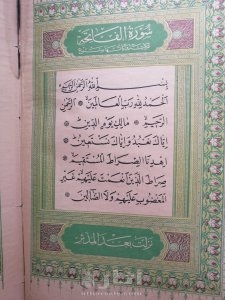 سورة الفاتحة
بسم الله الرحمن الرحيم
الحمد لله رب العالمين الرحمن
الرحيم مالك يوم الدين
إياك نعبد وإياك نستعين
اهدنا الصراط المستقيم
صراط الذين أنعمت عليهم غير
المغضوب عليهم ولا الضالين
نزلت بعد المدثر